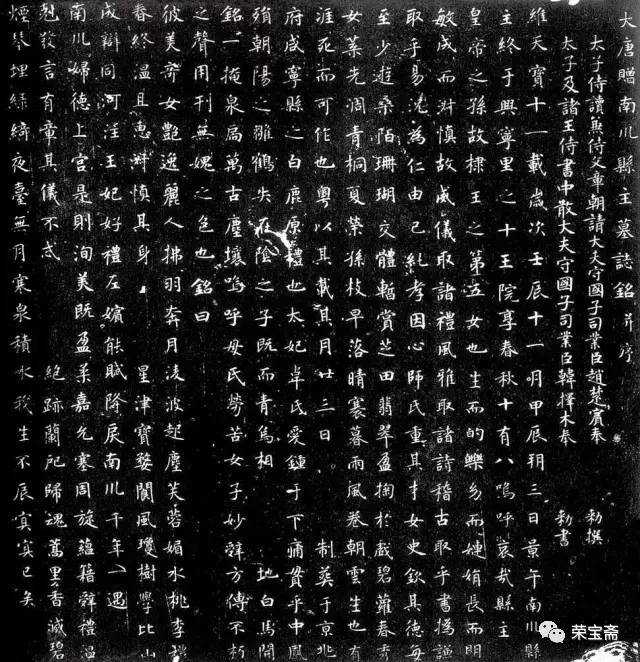 大唐贈南川縣主墓誌銘并序
太子侍讀兼侍文章朝請大夫守國子司業臣趙楚賓奉 勑撰
太子及諸王侍書中散大夫守國子司業臣韓擇木奉 勑書
維天寶十一載歲次壬辰十一月甲辰朔三日景午南川縣
主終于興寧里之十王院享春秋十有八嗚呼哀哉縣主
皇帝之孫故棣王之第五女也生而的皪幼而婕娟長而明
敏成而淑慎故威儀取諸禮風雅取諸詩稽古取乎書撝謙
取乎易沈為仁由己純孝因心師氏重其才女史欽其德每
至少遊桑陌珊瑚交體暫賞芝田翡翠盈掬於戲碧蘿春秀
女葉先凋青桐夏榮孫枝早落晴褰暮雨風卷朝雲生也有
涯死而可作也粵以其載其月廿三日 制葬于京兆
府咸寧縣之白鹿原禮也太妃卓氏愛鍾于下痛貫乎中鳳
殞朝陽之雛鶴失在陰之子既而青烏相 地白馬開
銘一掩泉扃萬古塵壤嗚呼母氏勞苦女子妙辭方傳不朽
之聲用刊無媿之色也銘曰
彼美齊女艷逸麗人拂羽奔月淩波起塵芙蓉媚水桃李
春終溫且惠淑慎其身 星津寶婺閬風瓊樹學比山
成辯同河注王妃好禮左嬪能賦降戾南川千年一遇
南川婦德上宮是則洵美既盈柔嘉允塞周旋蘊藉辭禮溫
剋敦言有章其儀不忒 絕跡蘭阤歸魂蒿里香滅碧
煙琴埋綠綺夜臺無月寒泉積水我生不辰寘寘已矣
荣宝斋